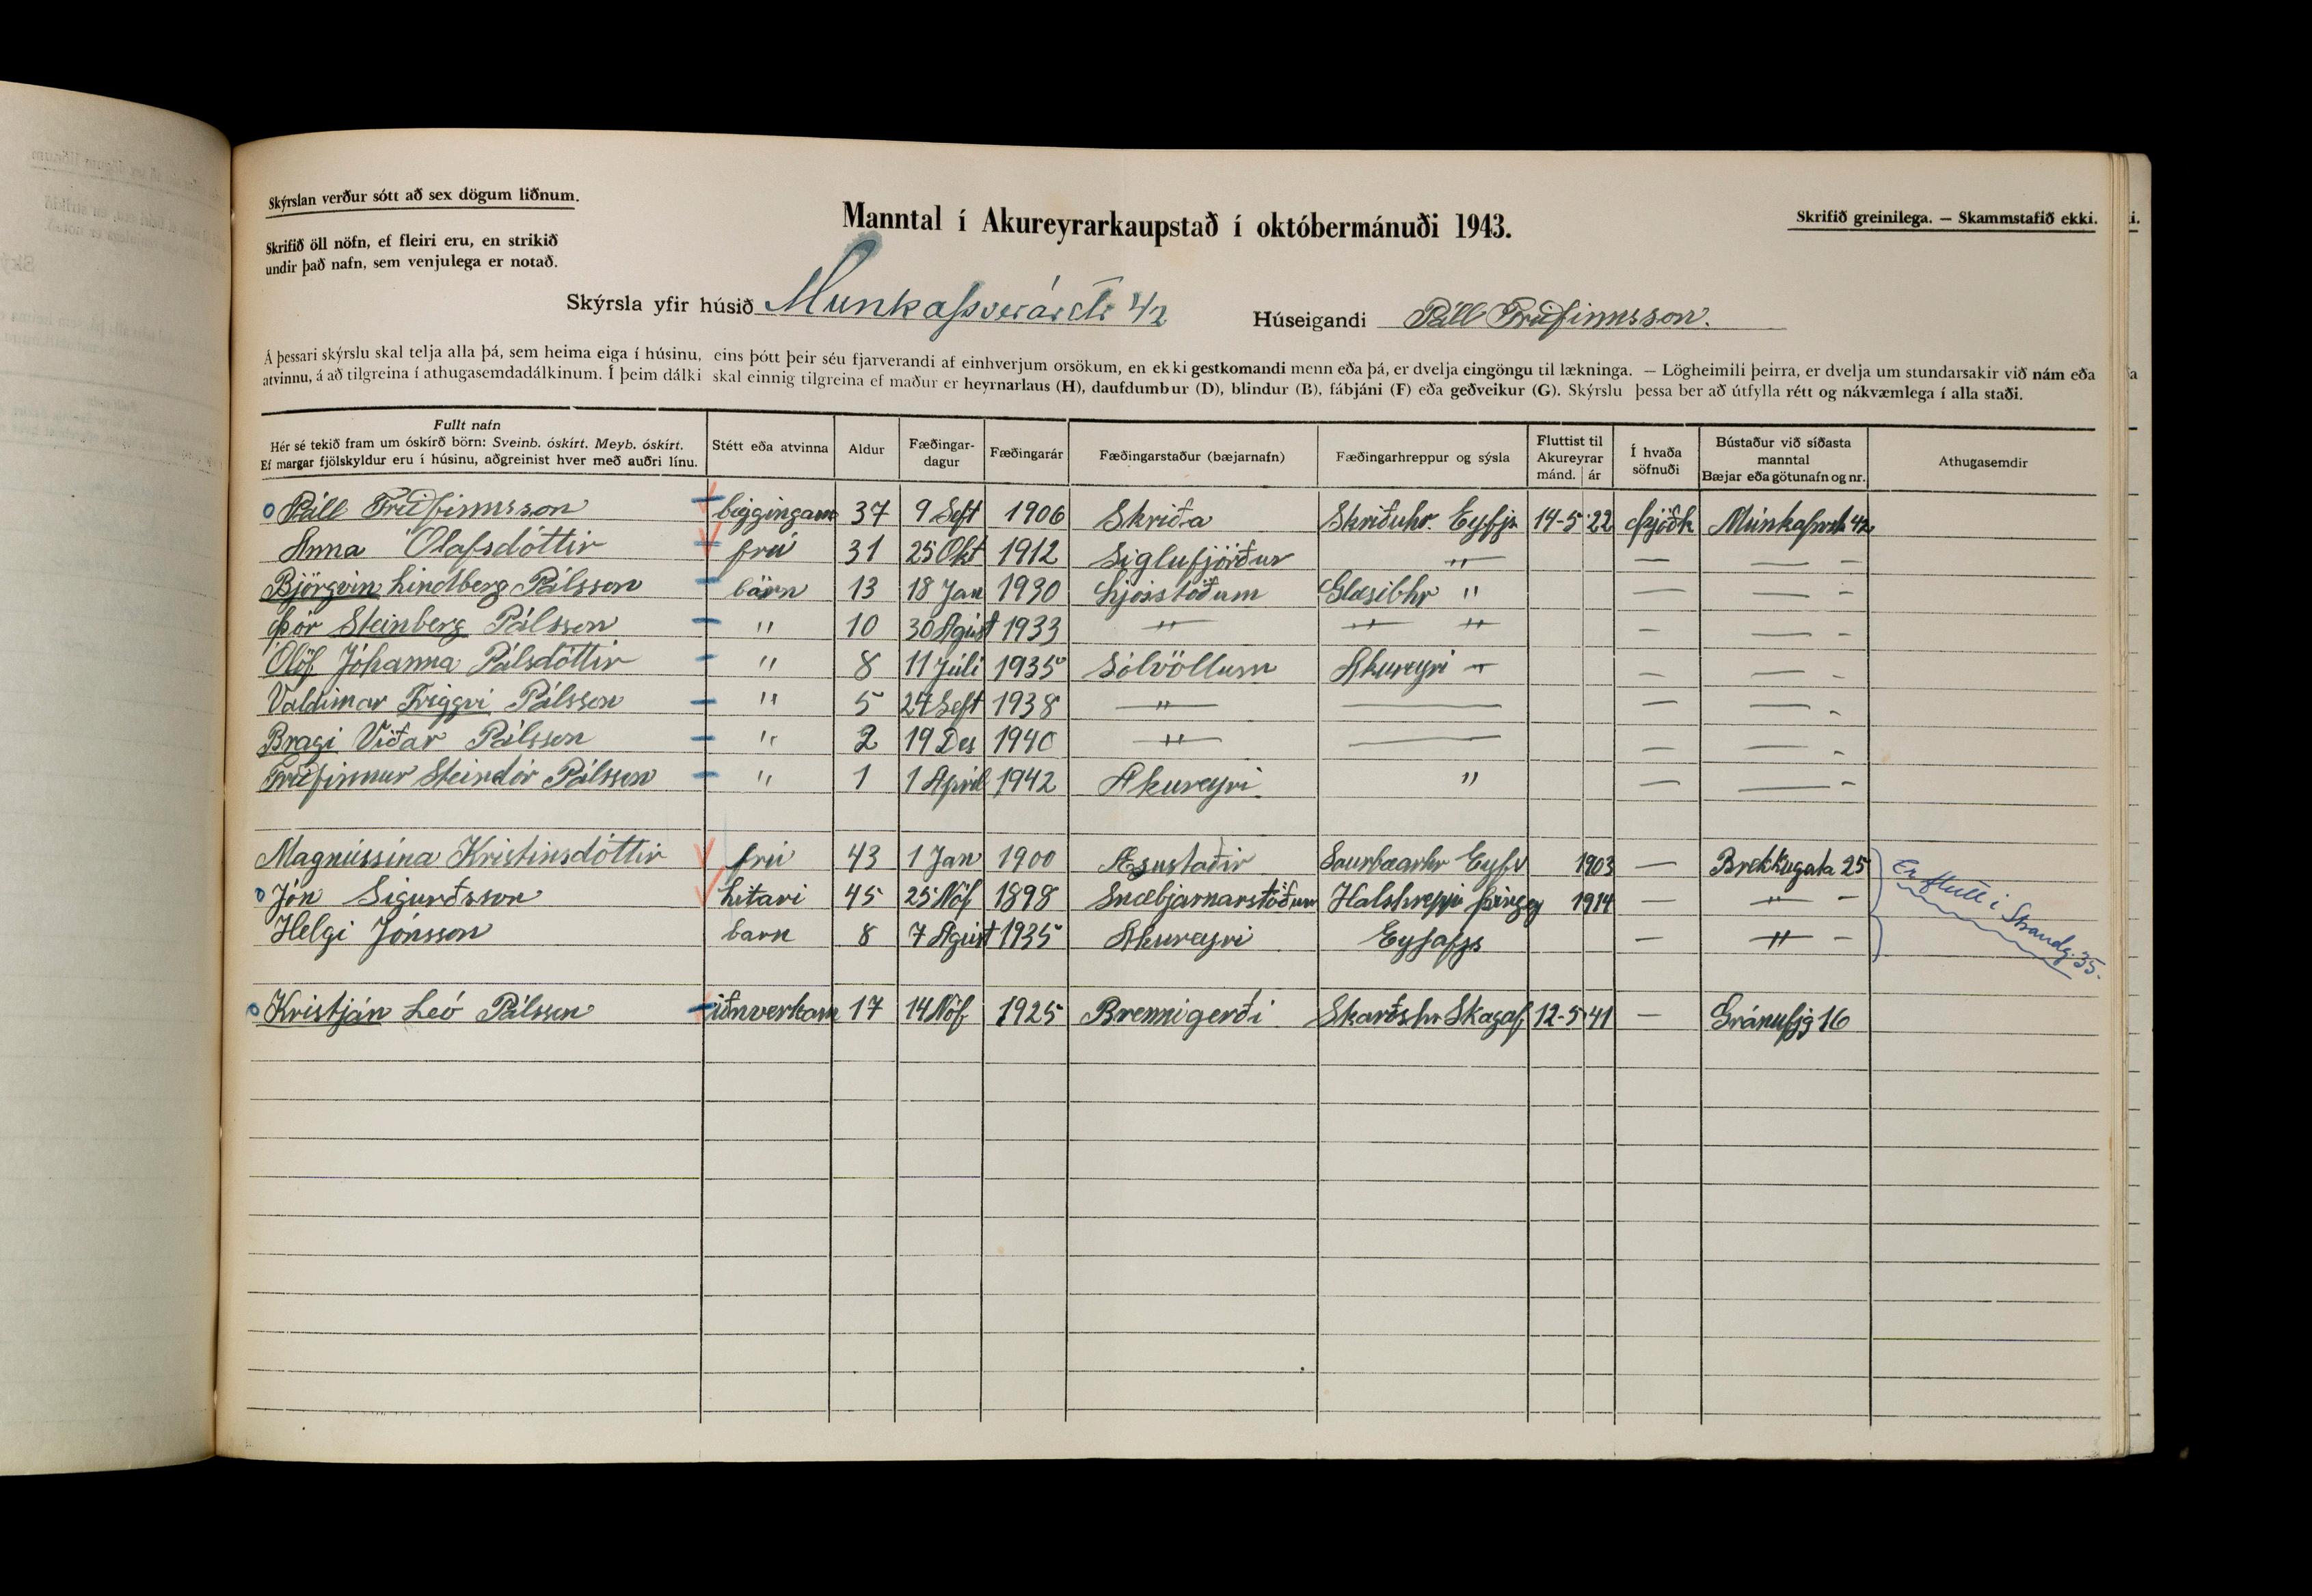 Skýrslan verður sótt að sex dögum liðnum.
Skrifið öll nöfn, ef fleiri eru, en strikið
undir það nafn, sem venjulega er notað.
Manntal í Akureyrarkaupstað í októbermánuði 1943.
Skrifið greinilega. — Skammstafið ekki.
Skýrsla yfir húsið Munkaþverárstr 42 Húseigandi Páll Friðfinnsson.
Á þessari skýrslu skal telja alla þá, sem heima eiga í húsinu, eins þótt þeir séu fjarverandi af einhverjum orsökum, en ekki gestkomandi menn eða þá, er dvelja eingöngu til lækninga. — Lögheimili þeirra, er dvelja um stundarsakir við nám eða
atvinnu, á að tilgreina í athugasemdadálkinum. Í þeim dálki skal einnig tilgreina ef maður er heyrnarlaus (H), daufdumbur (D), blindur (B), fábjáni (F) eða geðveikur (G). Skýrslu þessa ber að útfylla rétt og nákvæmlega í alla staði.
Fullt nafn
Hér sé tekið fram um óskírð börn: Sveinb. óskírt. Meyb. óskírt.
Ef margar fjölskyldur eru í húsinu, aðgreinist hver með auðri línu.
Stétt eða atvinna
Aldur
Fæðingar-
dagur
Fæðingarár
Fæðingarstaður (bæjarnafn)
Fæðingarhreppur og sýsla
Fluttist til
Akureyrar
mánd. ár
Í hvaða
söfnuði
Bústaður við síðasta
manntal
Bæjar eða götunafn og nr.
Athugasemdir
Páll Friðfinnsson biggingam 37 9 Seft 1906 Skriða Skriðuhr. Eyfjs 14-5 22 þjóðk Munkaþvstr 42
Anna Ólafsdóttir frú 31 25 Okt 1912 Siglufjörður " — — -
Björgvin Lindberg Pálsson börn 13 18 Jan 1930 Ljósstöðum Glæsibhr " — — -
Þór Steinberg Pálsson " 10 30 Agúst 1933 " " " — — -
Ólöf Jóhanna Pálsdóttir " 8 11 Júlí 1935 Sólvöllum Akureyri " — — -
Valdimar Triggvi Pálsson " 5 27 Seft 1938 " — — — -
Bragi Viðar Pálsson " 2 19 Des 1940 " — — — -
Friðfinnur Steindór Pálsson " 1 1 Apríl 1942 Akureyri " — — -
Magnússína Kristinsdóttir frú 43 1 Jan 1900 Æsustaðir Saurbæarhr Eyfs 1903 — Brekkugata 25
Jón Sigurðsson hitari 45 25 Nóf 1898 Snæbjarnarstöðum Halshreppi Þingey 1914 — " -
Er flutt í Strandg. 35.
Helgi Jónsson barn 8 7 Agúst 1935 Akureyri Eyjafjs — " -
Kristján Leó Pálsson iðnverkam 17 14 Nóf 1925 Brennigerði Skarðshr Skagaf 12-5 41 — Gránufjg 16